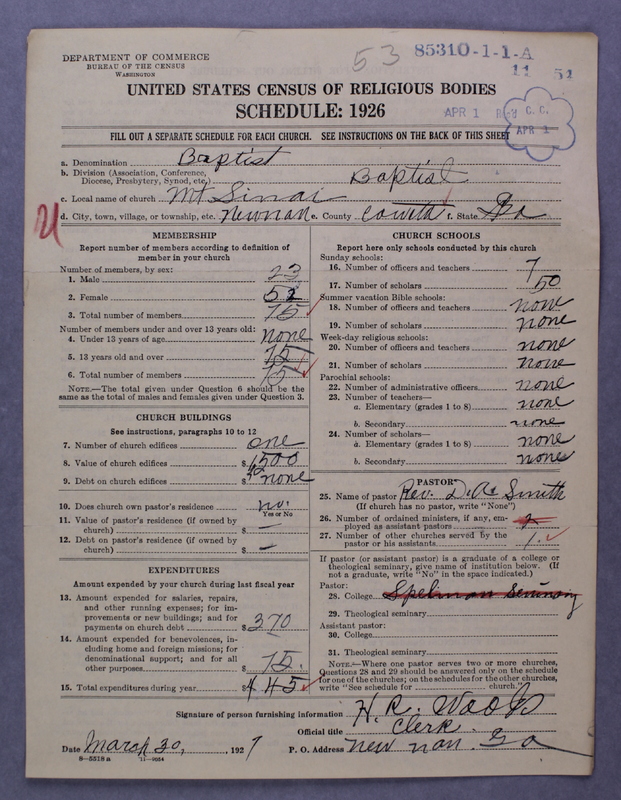 53 85310-1-1-A
11 51
DEPARTMENT OF COMMERCE
BUREAU OF THE CENSUS
WASHINGTON
UNITED STATES CENSUS OF RELIGIOUS BODIES
SCHEDULE: 1926
APR 1
C. C.
APR 1
FILL OUT A SEPARATE SCHEDULE FOR EACH CHURCH. SEE INSTRUCTIONS ON THE BACK OF THIS SHEET
a. Denomination Baptist
b. Division (Association, Conference,
Diocese, Presbytery, Synod, etc.) Baptist
c. Local name of church Mt Sinai
d. City, town, village, or township, etc. Newnan e. County Coweta f. State Ga
MEMBERSHIP
Report number of members according to definition of
member in your church
Number of members, by sex:
1. Male 23
2. Female 52
3. Total number of members 75
Number of members under and over 13 years old:
4. Under 13 years of age none
5. 13 years old and over 75
6. Total number of members 75
NOTE.—The total given under Question 6 should be the
same as the total of males and females given under Question 3.
CHURCH BUILDINGS
See instructions, paragraphs 10 to 12
7. Number of church edifices one
8. Value of church edifices $1500
9. Debt on church edifices $ none
10. Does church own pastor's residence? no.
Yes or No
11. Value of pastor's residence (if owned by
church) $ —
12. Debt on pastor's residence (if owned by
church) $ —
EXPENDITURES
Amount expended by your church during last fiscal year
13. Amount expended for salaries, repairs,
and other running expenses; for im-
provements or new buildings; and for
payments on church debt $370
14. Amount expended for benevolences, in-
cluding home and foreign missions; for
denominational support; and for all
other purposes $ 75.
15. Total expenditures during year $445
CHURCH SCHOOLS
Report here only schools conducted by this church
Sunday schools:
16. Number of officers and teachers 7
17. Number of scholars 50
Summer vacation Bible schools:
18. Number of officers and teachers none
19. Number of scholars none
Week-day religious schools:
20. Number of officers and teachers none
21. Number of scholars none
Parochial schools:
22. Number of administrative officers none
23. Number of teachers—
a. Elementary (grades 1 to 8) none
b. Secondary none
24. Number of scholars—
a. Elementary (grades 1 to 8) none
b. Secondary none
PASTOR
25. Name of pastor Rev. D. A. Smith
(If church has no pastor, write "None")
26. Number of ordained ministers, if any, em-
ployed as assistant pastors
27. Number of other churches served by the
pastor or his assistants 1.
If pastor (or assistant pastor) is a graduate of a college or
theological seminary, give name of institution below. (If
not a graduate, write "No" in the space indicated.)
Pastor:
28. College Spelman Seminary
29. Theological seminary
Assistant pastor:
30. College
31. Theological seminary
NOTE.—Where one pastor serves two or more churches,
Questions 28 and 29 should be answered only on the schedule
for one of the churches; on the schedules for the other churches,
write "See schedule for church."
Signature of person furnishing information H. R. Woods
Official title Clerk
Date March 30, 1927 P. O. Address New nan. Ga
8—5518 a 11—9054